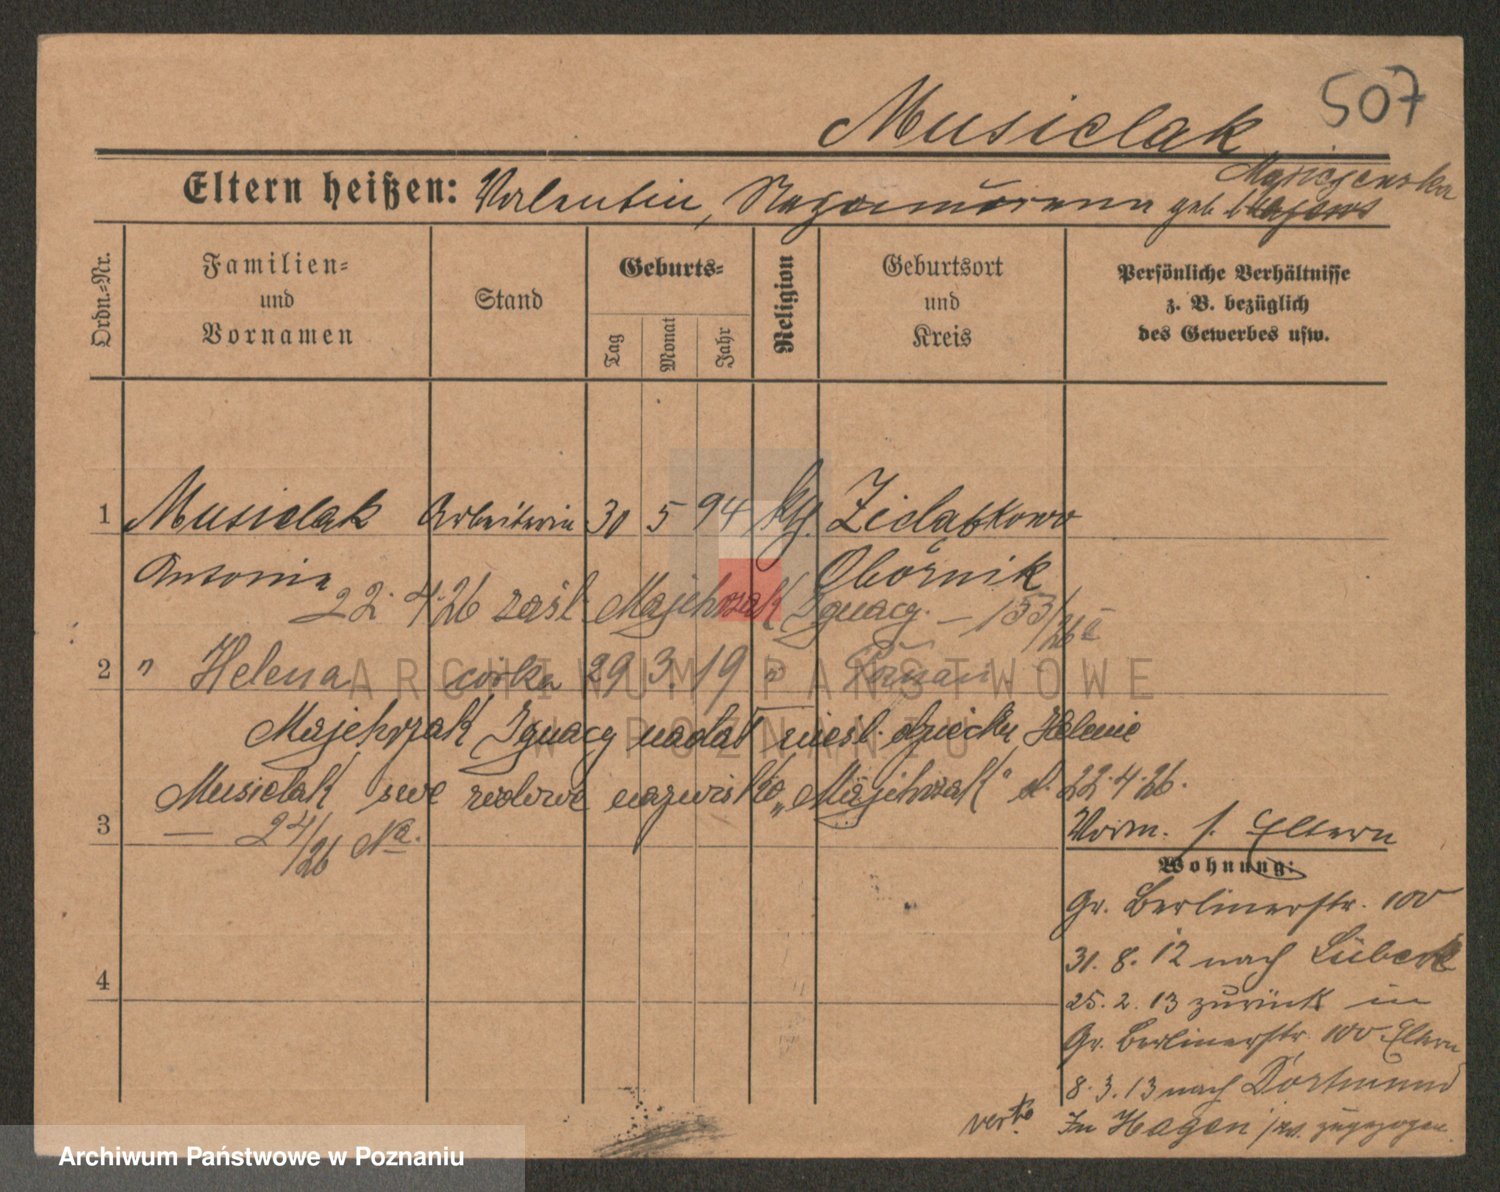 507
Musielak
Eltern heißen: Valentin, geb.
Ordn.-Nr.
Familien- und Vornamen
Stand
Geburts-
Tag
Monat
Jahr
Religion
Geburtsort und Kreis
Persönliche Verhältnisse z. B. bezüglich des Gewerbes usw.
1 Musielak Arbeiterin 30 5 94 kth.
Antonia Obornik
22.4.26 zaśl. Majchrzak Ignacy
2 " Helena córka 29 3. 19 " Poznań
Majchrzak Ignacy nadał nieśl. dziecku Helenie
Musielak swe rodowe nazwisko „Majchrzak" d. 22.4.26.
3
24/26
Vorm. s. Eltern
Wohnung:
Gr. Berlinerstr. 100
31. 8. 12 nach Lübeck
4
25. 2. 13 zurück in
Gr. Berlinerstr. 100 Eltern
8. 3. 13 nach Dortmund
In Hagen zugezogen
verte
ARCHIWUM PAŃSTWOWE
W POZNANIU
Archiwum Państwowe w Poznaniu